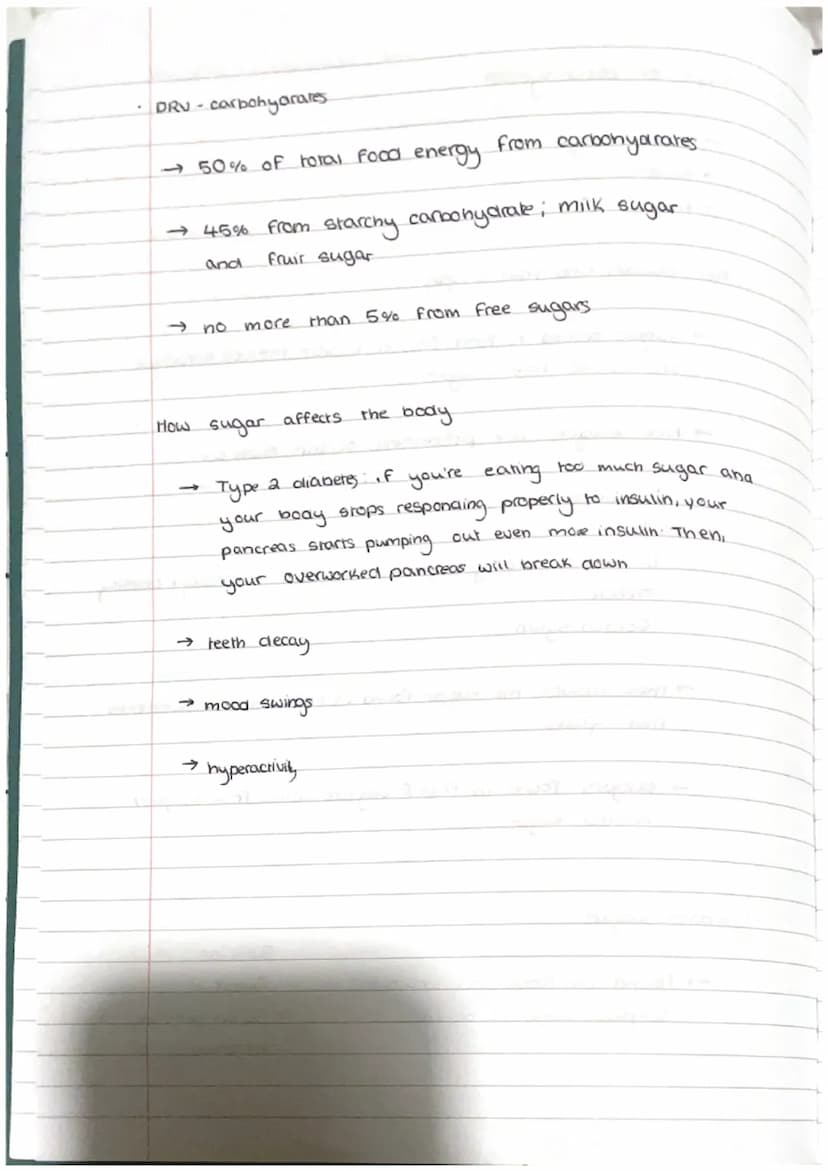 · DRV - carbohydrates
→ 50% of total food energy from carbohydrates
→ 45% from starchy carbohydrate; milk sugar
and fruit sugar
→ no more than 5% from free sugars
How sugar affects the body
→ Type 2 diabetes: if you're eating too much sugar and
your body stops responding properly to insulin, your
pancreas starts pumping out even more insulin. Then,
your overworked pancreas will break down
→ teeth decay
→ mood swings
→ hyperactivity